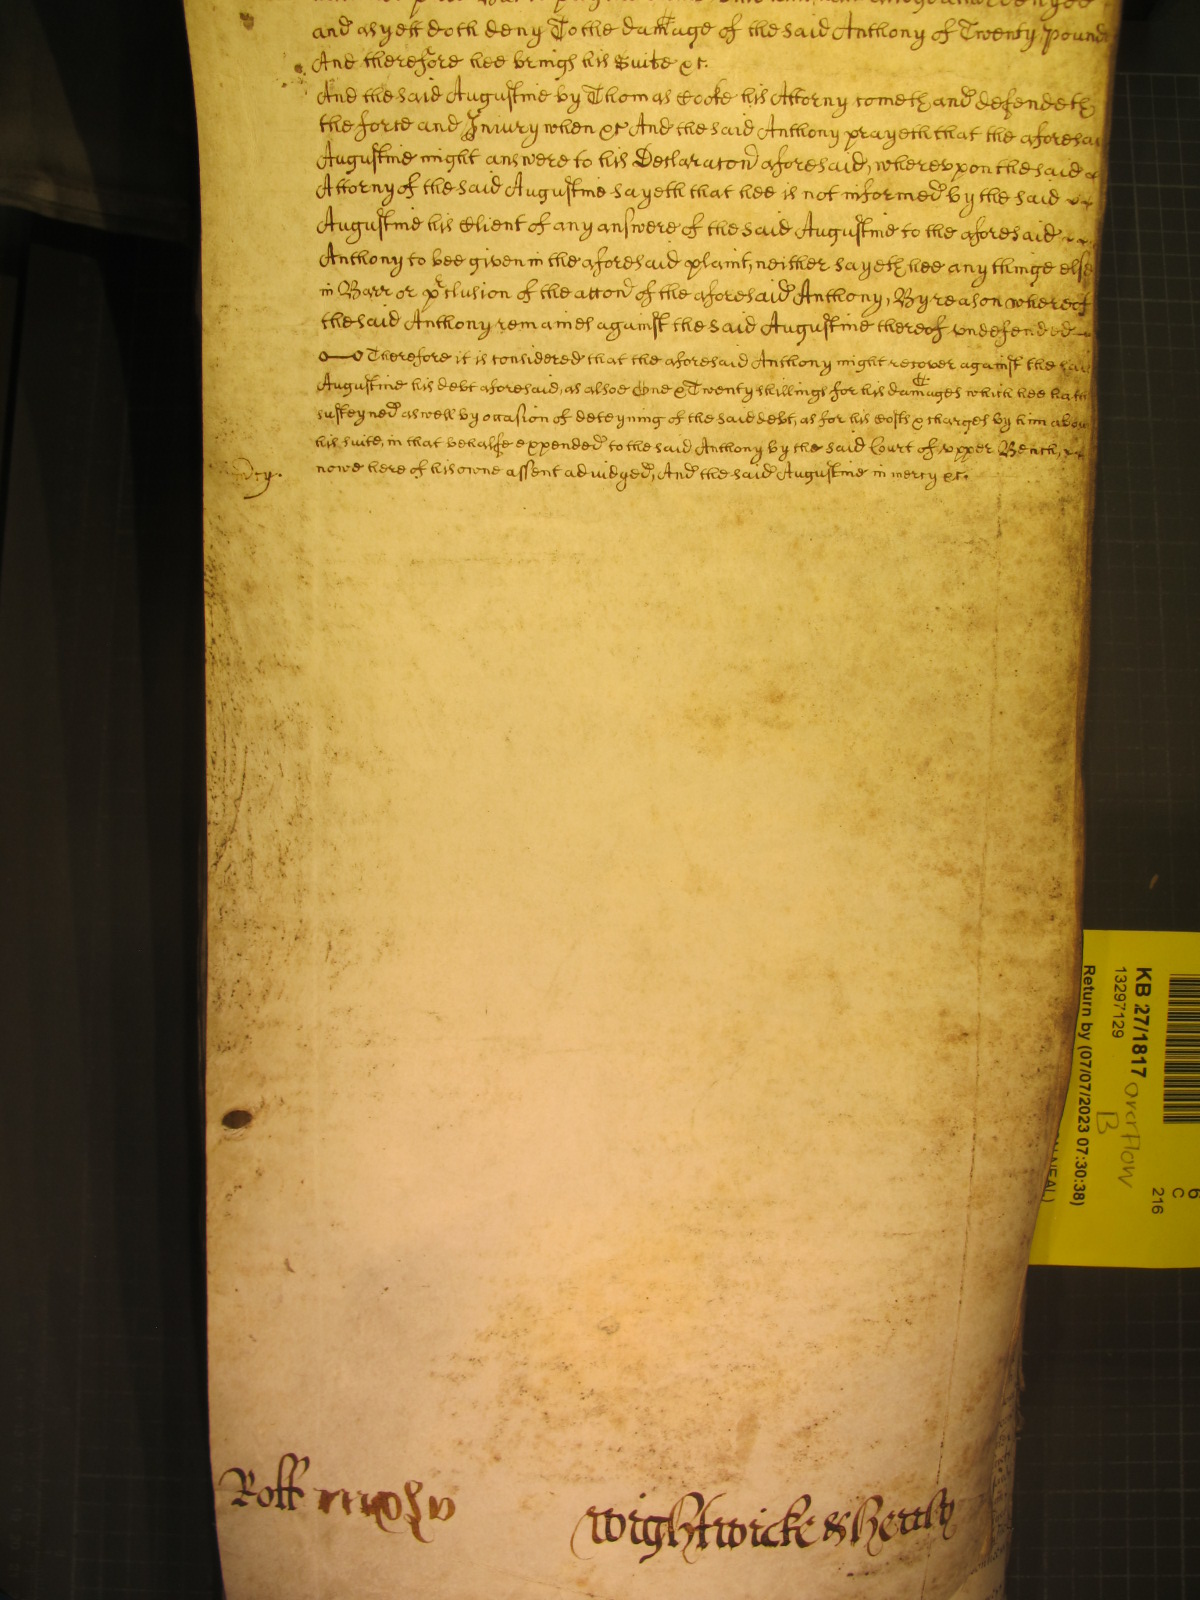 and as yett doth deny To the damage of the said Anthony of Twenty pounds
And therefore hee brings his Suite &c.
And the said Augustine by Thomas Cocke his Attorny cometh and defendeth
the force and Iniury when &c And the said Anthony prayeth that the aforesai
Augustine might answere to his Declaracon aforesaid, wherevpon the said
Attorny of the said Augustine sayeth that hee is not informed by the said
Augustine his Client of any answere of the said Augustine to the aforesaid
Anthony to bee given in the aforesaid plaint, neither sayeth hee any thinge else
in Barr or pclusion of the accon of the aforesaid Anthony, By reason whereof
the said Anthony remaines against the said Augustine thereof vndefended
Therefore it is considered that the aforesaid Anthony might recover against the said
Augustine his debt aforesaid, as alsoe One & Twenty shillings for his damages which hee hath
susteyned aswell by occasion of deteyning of the said debt, as for his Costs & charges by him about
his suite, in that behalfe expended to the said Anthony by the said Court of vpper Bench,
nowe here of his owne assent adiudged, And the said Augustine in mercy &c.
KB 27/1817 overflow
B
13297129
Return by (07/07/2023 07:30:38)
6
C
216
Roll
Wightwicke &